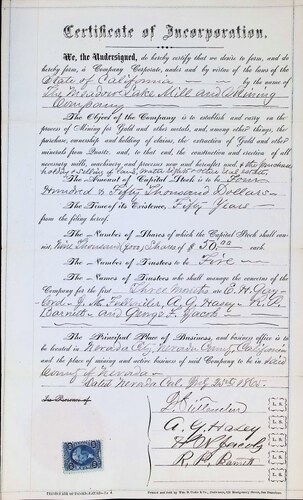 Certificate of Incorporation.
We, the Undersigned, do hereby certify that we desire to form, and do
hereby form, a Company Corporate, under and by virtue of the laws of the
State of California by the name of
The Meadow Lake Mill and Mining
Company
The Object of the Company is to establish and carry on the
process of Mining for Gold and other metals, and, among other things, the
purchase, ownership and holding of claims, the extraction of Gold and other
minerals from Quartz, and, to that end, the construction and erection of all
necessary mills, machinery and processes now and hereafter used & the purchase
holding & selling of Land, water & other real estate
The Amount of its Capital Stock is to be
Hundred & Fifty Thousand Dollars
The Time of its Existence, Fifty Years
from the filing hereof.
The Number of Shares of which the Capital Stock shall con-
sist, Nine Thousand (9000) Shares of $50.00 each.
The Number of Trustees to be Five
The Names of Trustees who shall manage the concerns of the
Company for the first Three months are E. H. Gay-
lord, A. G. Haley R. P.
Barnett and George F. Jacobs
The Principal Place of Business, and business office is to
be located in Nevada City, Nevada County, California
and the place of mining and active business of said Company to be in said
County of Nevada
Dated Nevada Cal. 1865
In Presence of
A. G. Haley
Jacobs
R. P. Barnett